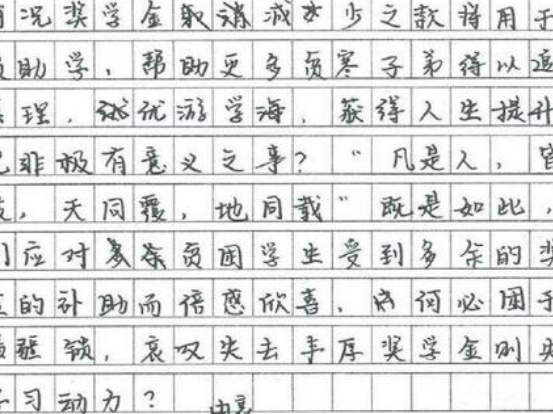 况奖学金取消减少之款得用于
助学，帮助更多贫寒子弟得以追
理，优游学海，获得人生提升
非极有意义之事？“凡是人，皆
，天同覆，地同载”既是如此，
们应对贫困学生受到多余的奖
的补助而倍感欣喜，何必困于
疆锁，哀叹失去丰厚奖学金则失
学习动力？